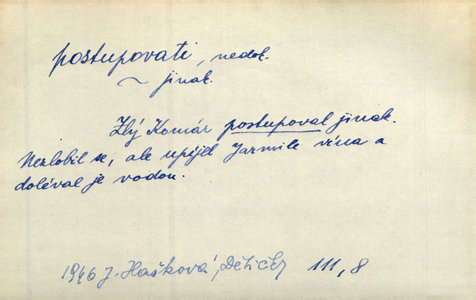 postupovati, nedok.
~ jinak.
Zlý Komár postupoval jinak.
Nezlobil se, ale upíjel Jarmile vína a
doléval je vodou.
1946 J. Hašková, Dětičky 111, 8